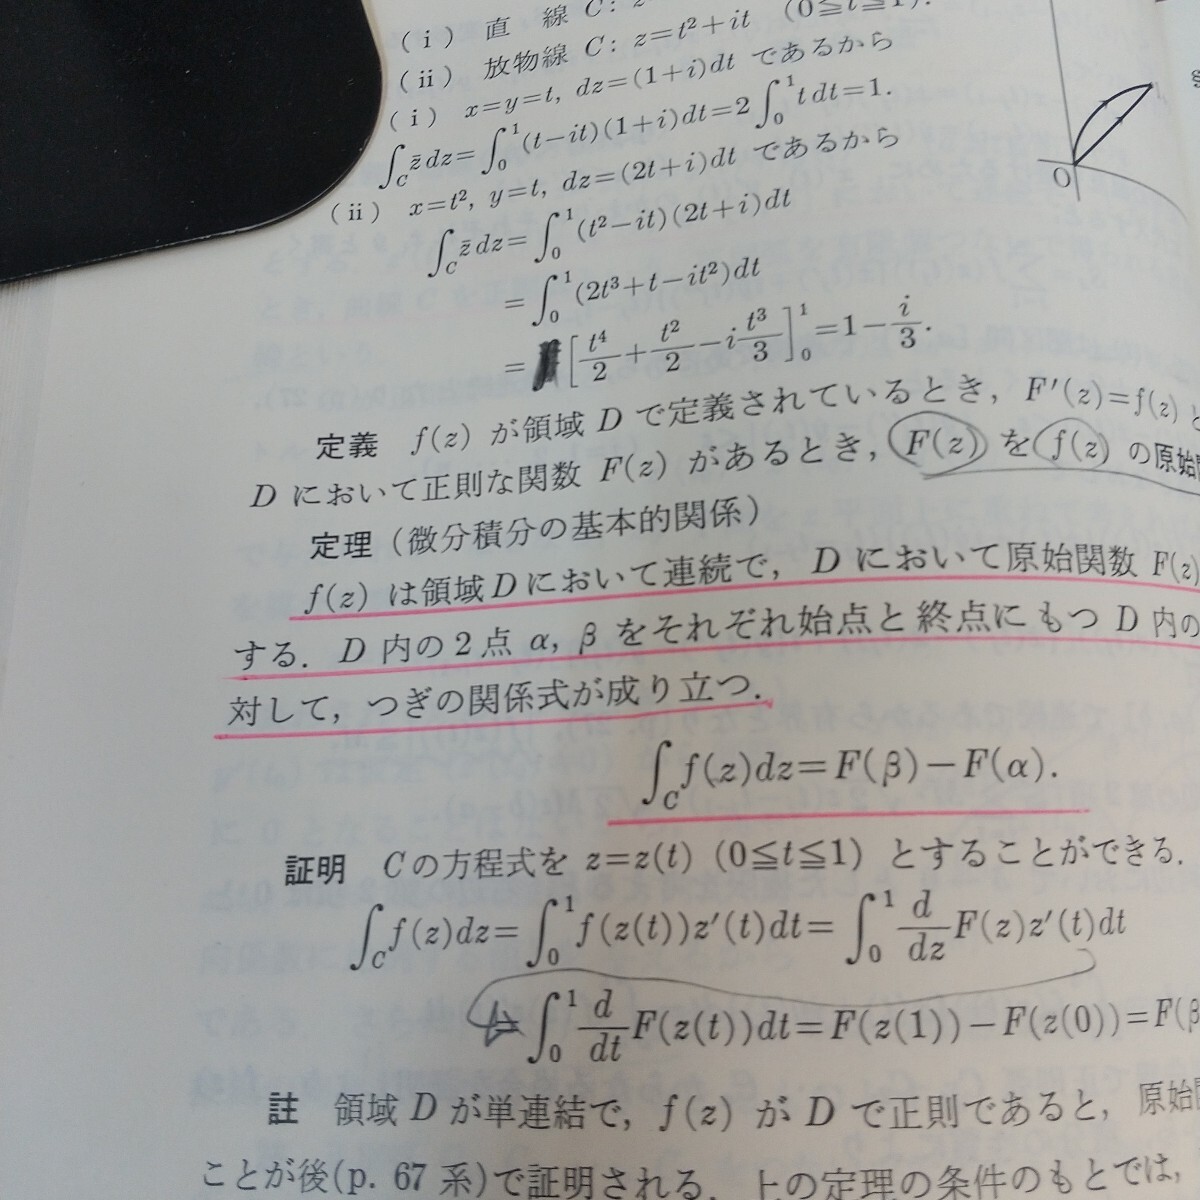 (i) 直線 C: z
(ii) 放物線 C: z=t²+it (0≦t≦1).
(i) x=y=t, dz=(1+i)dt であるから
∫_C z̄dz=∫₀¹(t-it)(1+i)dt=2∫₀¹tdt=1.
(ii) x=t², y=t, dz=(2t+i)dt であるから
∫_C z̄dz=∫₀¹(t²-it)(2t+i)dt
=∫₀¹(2t³+t-it²)dt
=[t⁴/2+t²/2-i t³/3]₀¹=1-i/3.
O
定義 f(z) が領域 D で定義されているとき, F′(z)=f(z) と
D において正則な関数 F(z) があるとき, F(z) を f(z) の原始
定理 (微分積分の基本的関係)
f(z) は領域 D において連続で, D において原始関数 F(z)
する. D 内の2点 α, β をそれぞれ始点と終点にもつ D 内の
対して, つぎの関係式が成り立つ.
∫_C f(z)dz=F(β)-F(α).
証明 Cの方程式を z=z(t) (0≦t≦1) とすることができる.
∫_C f(z)dz=∫₀¹f(z(t))z′(t)dt=∫₀¹ d/dz F(z)z′(t)dt
=∫₀¹ d/dt F(z(t))dt=F(z(1))-F(z(0))=F(β
註 領域 D が単連結で, f(z) が D で正則であると, 原始
ことが後(p. 67 系)で証明される. 上の定理の条件のもとでは,